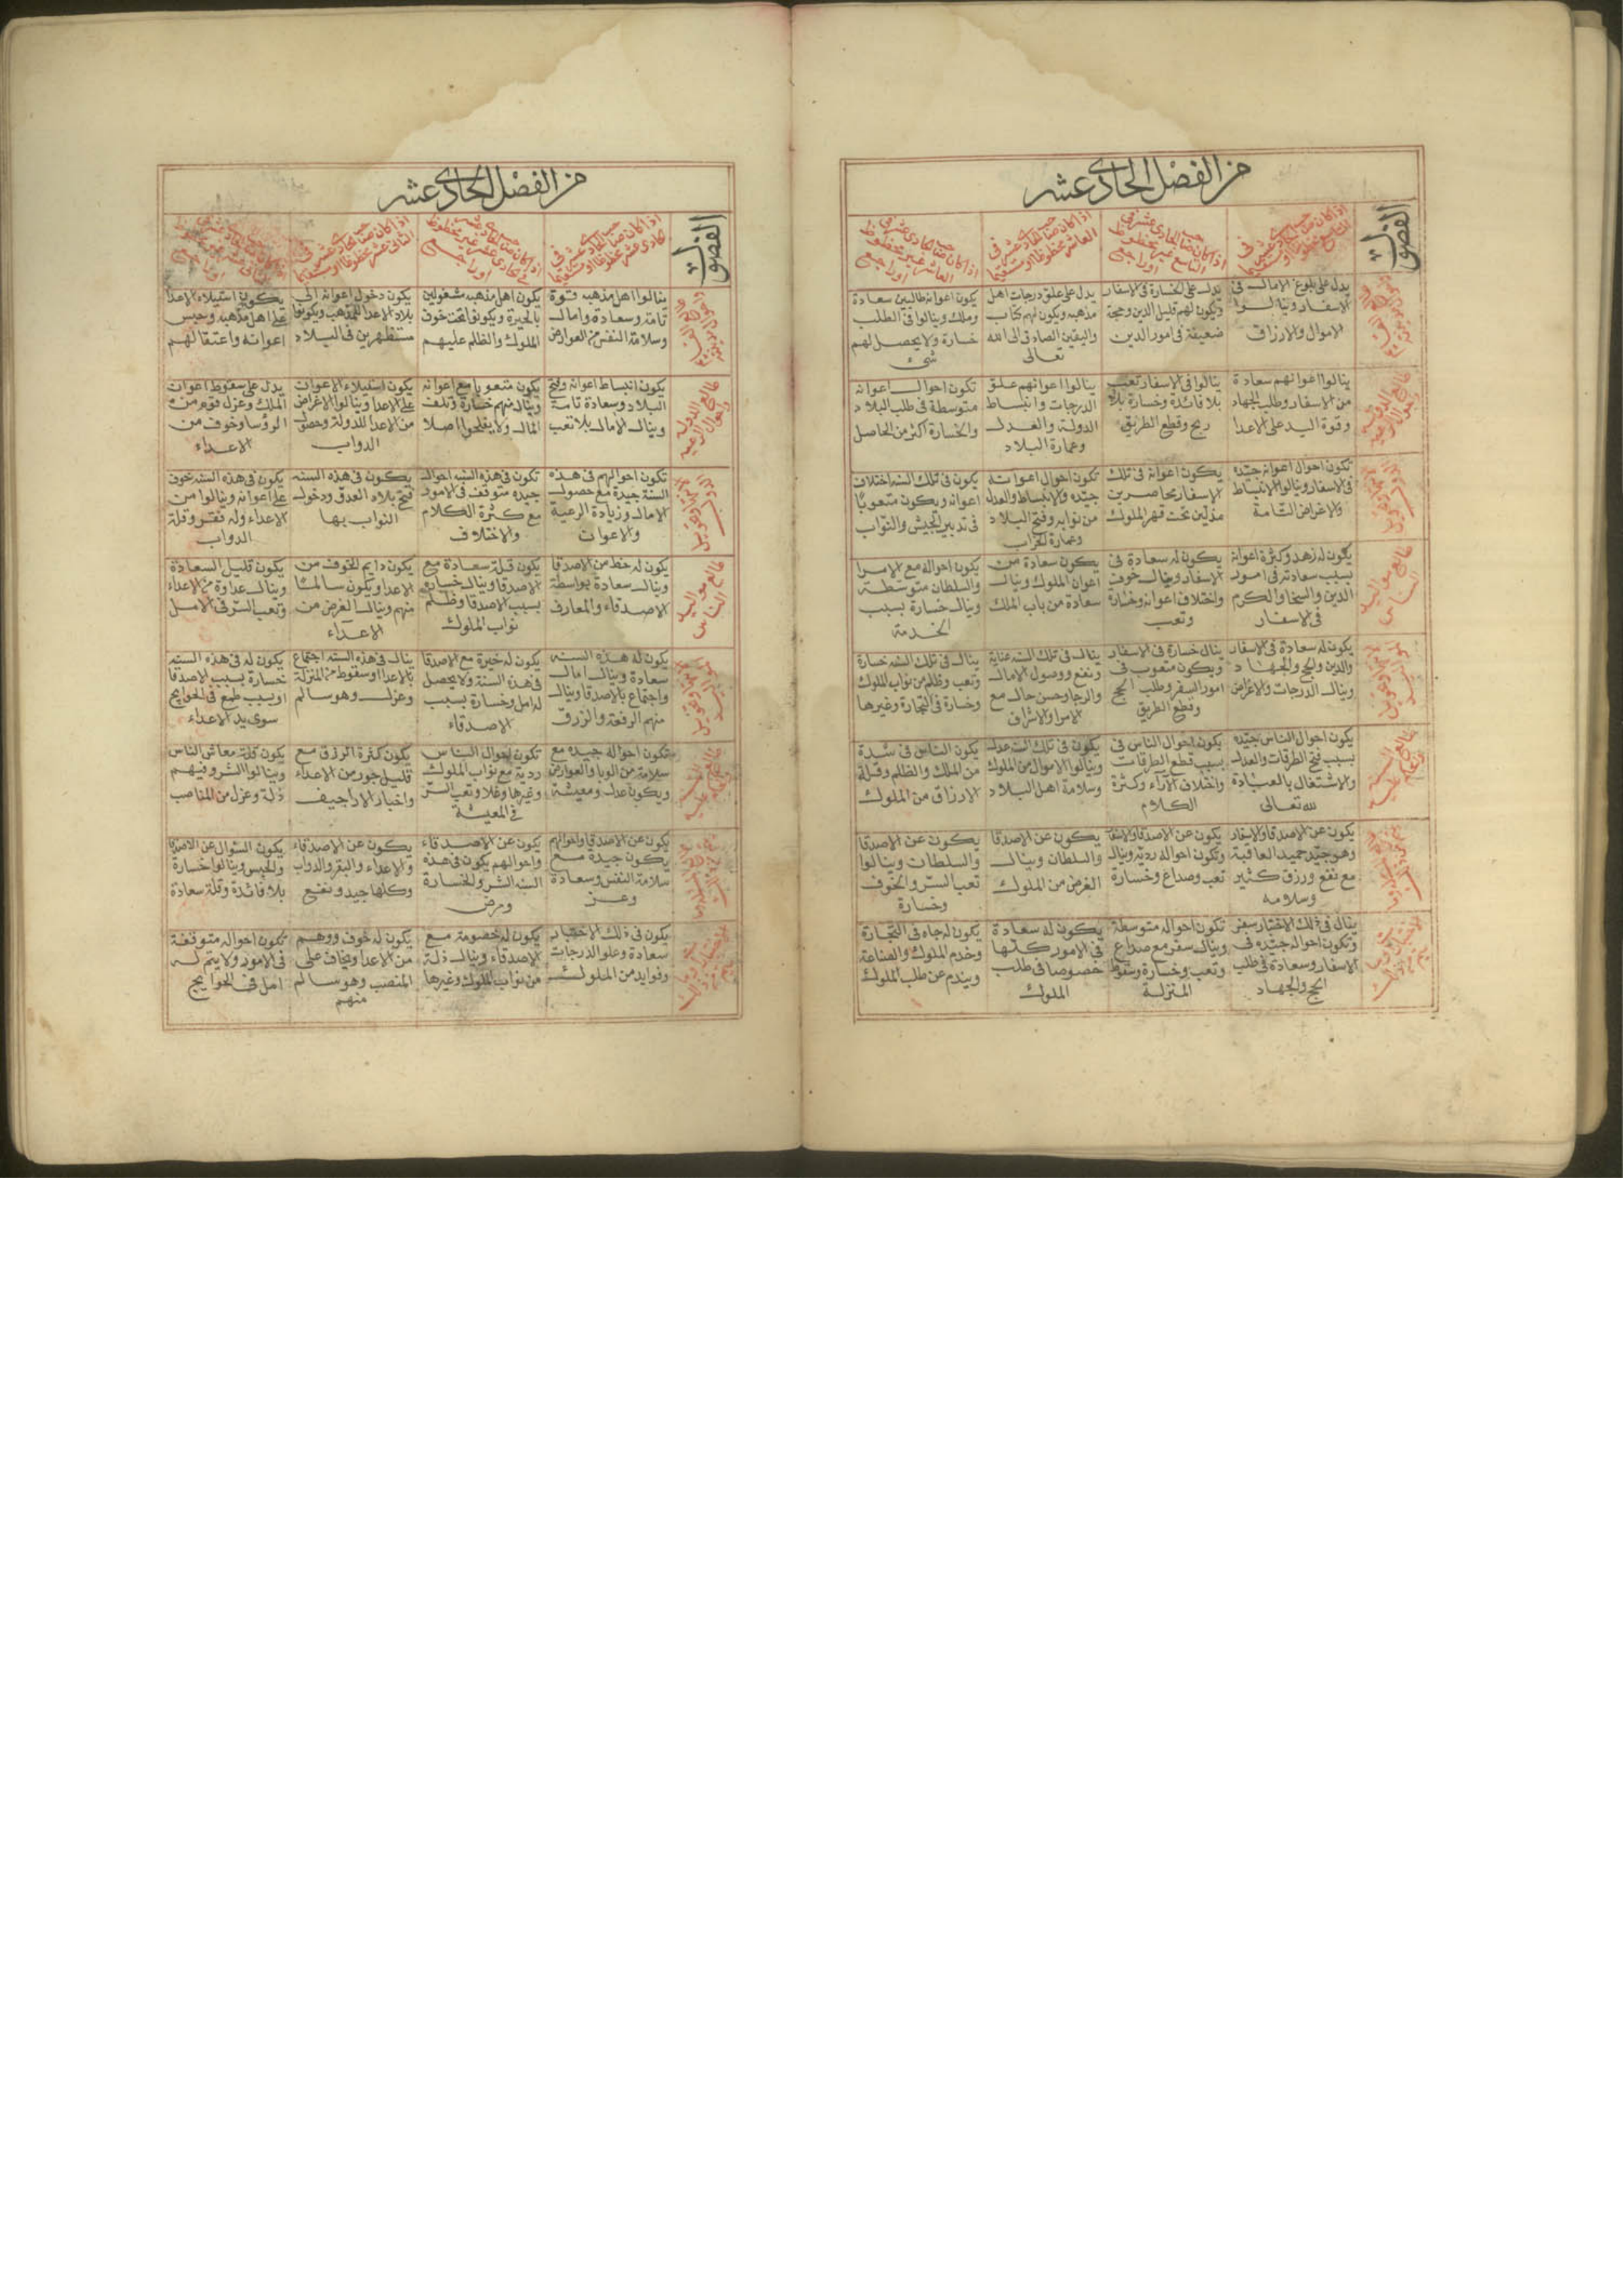 من الفصل الحادى عشر
الفصول
اذا كان صاحب الحادى عشر فى
التاسع محظوظا او مستقيما
اذا كان صاحب الحادى عشر فى
التاسع غير محظوظ
او راجع
اذا كان صاحب الحادى عشر فى
العاشر محظوظا او مستقيما
اذا كان صاحب الحادى عشر فى
العاشر غير محظوظ
او راجع
يدل على بلوغ الامال فى
الاسفار وينالوا
الاموال والارزاق
يدل على الخسارة فى الاسفار
ويكون لهم قليل الدين وحجة
ضعيفة فى امور الدين
يدل على علو درجات اهل
مذهبه ويكون لهم كتاب
واليقين الصادق الى الله
تعالى
يكون اعوانه طالبين سعادة
وملك وينالوا فى الطلب
خسارة ولا يحصل لهم
شى
طالع الدولة
واحوال الرعيه
ينالوا اعوانهم سعادة
من الاسفار وطلب الجهاد
وقوة اليد على الاعدا
ينالوا فى الاسفار تعب
بلا فائدة وخسارة بلا
ربح وقطع الطريق
ينالوا اعوانهم علو
الدرجات وانبساط
الدولة والعدل
وعمارة البلاد
تكون احوال اعوانه
متوسطة فى طلب البلاد
والخسارة اكثر من الحاصل
تكون احوال اعوانه جيده
فى الاسفار وينالوا الانبساط
والاغراض التامة
يكون اعوانه فى تلك
الاسفار محاصرين
مذلين تحت قهر الملوك
تكون احوال اعوانه
جيده والانبساط والعدل
من نوابه وفتح البلاد
وعمارة الخراب
يكون فى تلك السنه اختلاف
اعوانه ويكون متعوبا
فى تدبير الجيش والنواب
طالع مواليد
الناس
يكون له زهد وكثرة اعوانه
بسبب سعادته فى امور
الدين والسخا والكرم
فى الاسفار
يكون له سعادة فى
الاسفار وينال خوف
واختلاف اعوانه وخسارة
وتعب
يكون سعادة من
اعوان الملوك وينال
سعادة من باب الملك
يكون احواله مع الاسرا
والسلطان متوسطة
وينال خسارة بسبب
الخدمة
يكون له سعادة فى الاسفار
والدين والحج والجهاد
وينال الدرجات والاغراض
ينال خسارة فى الاسفار
ويكون متعوب فى
امور السفر وطلب الحج
وقطع الطريق
ينال فى تلك السنه عناية
ونفع ووصول الامال
والرجا وحسن حال مع
الاسرار والاشراف
ينال فى تلك السنه خسارة
وتعب وظلم من نواب الملوك
وخسارة فى التجارة وغيرها
يكون احوال الناس جيده
بسبب فتح الطرقات والعدل
والاشتغال بالعبادة
لله تعالى
يكون احوال الناس فى
بسبب قطع الطرقات
واختلاف الآراء وكثرة
الكلام
يكون فى تلك السنه عدل
وينالوا الاموال من الملوك
وسلامة اهل البلاد
يكون الناس فى شدة
من الملك والظلم وقلة
الارزاق من الملوك
يكون عن الاصدقا والاسفار
وهو جيد حميد العاقبة
مع نفع ورزق كثير
وسلامه
يكون عن الاصدقا والاسفار
وتكون احواله رديه وينال
تعب وصداع وخسارة
يكون عن الاصدقا
والسلطان وينال
الغرض من الملوك
يكون عن الاصدقا
والسلطان وينالوا
تعب السر والخوف
وخسارة
ينال فى ذلك الاختيار سفر
وتكون احواله جيده فى
الاسفار وسعادة فى طلب
الحج والجهاد
تكون احواله متوسطة
وينال سفر مع صداع
وتعب وخسارة وسقوط
المنزلة
يكون له سعادة
فى الامور كلها
خصوصا فى طلب
الملوك
يكون له جاه فى التجارة
وخدم الملوك والصناعة
ويندم عن طلب الملوك
من الفصل الحادى عشر
الفصول
اذا كان صاحب الحادى عشر فى
الحادى عشر محظوظا او مستقيما
اذا كان صاحب الحادى عشر
فى الحادى عشر غير محظوظ
او راجع
اذا كان صاحب الحادى عشر فى
الثانى عشر محظوظا او مستقيما
ينالوا اهل مذهبه قوة
تامة وسعادة وامال
وسلامة النفس من العوارض
يكون اهل مذهبه مشغولين
بالحيرة ويكونوا تحت خوف
الملوك والظلم عليهم
يكون دخول اعوانه الى
بلاد الاعدا للمذهب ويكونوا
مستظهرين فى البلاد
يكون استيلاء الاعدا
على اهل مذهبه وحبس
اعوانه واعتقالهم
طالع الدولة
واحوال الرعيه
يكون انبساط اعوانه وفتح
البلاد وسعادة تامة
وينال الامال بلا تعب
يكون متعوبا مع اعوانه
وينال منهم خسارة وتلف
المال ولا يفلحوا اصلا
يكون استيلاء الاعوان
على الاعدا وينالوا الاغراض
من الاعدا للدولة وحصول
الدواب
يدل على سقوط اعوان
الملك وعزل قوم من
الروسا وخوف من
الاعداء
تكون احوالهم فى هذه
السنة جيدة مع حصول
الامال وزيادة الرعية
والاعوان
تكون فى هذه السنه احوال
جيده متوقف فى الامور
مع كثرة الكلام
والاختلاف
يكون فى هذه السنه
فتح بلاد العدو ودخول
النواب بها
يكون فى هذه السنه خوف
على اعوانه وينالوا من
الاعداء وله فقر وقلة
الدواب
طالع مواليد
الناس
يكون له حظ من الاصدقا
وينال سعادة بواسطة
الاصدقاء والمعارف
يكون قلة سعادة مع
الاصدقا وينال خسارة
بسبب الاصدقا وظلم
نواب الملوك
يكون دايم الخوف من
الاعدا ويكون سالما
منهم وينال الغرض من
الاعداء
يكون قليل السعادة
وينال عداوة من الاعداء
وتعب السر فى الامل
يكون له هذه السنه
سعادة وينال امال
واجتماع بالاصدقا وينال
منهم الرفعة والرزق
يكون له خيرة مع الاصدقا
فى هذه السنة ولا يحصل
له امل وخسارة بسبب
الاصدقاء
ينال فى هذه السنه اجتماع
بالاعدا وسقوط من المنزلة
وعزل وهو سالم
يكون له فى هذه السنه
خسارة بسبب الاصدقا
او بسبب طمع فى الحوايج
سوى يد الاعداء
تكون احواله جيده مع
سلامة من الوبا والعوارض
ويكون عدل ومعيشة
تكون احوال الناس
ردية مع نواب الملوك
وغيرها وغلا وتعب السر
فى المعيشة
يكون كثرة الرزق مع
قليل جور من الاعداء
واخبار الاراجيف
يكون قلة معاش الناس
وينالوا الشر وفيهم
ذلة وعزل من المناصب
يكون عن الاصدقا واحوالهم
يكون جيدة مع
سلامة النفس وسعادة
وعز
يكون عن الاصدقاء
واحوالهم يكون فى هذه
السنه الشر والخسارة
ومرض
يكون عن الاصدقاء
والاعداء والبقر والدواب
وكلها جيد ونفع
يكون السوال عن الاصدقا
والحبس وينالوا خسارة
بلا فائدة وقلة سعادة
يكون فى ذلك الاختيار
سعادة وعلو الدرجات
وفوايد من الملوك
يكون له خصومة مع
الاصدقاء وينال ذلة
من نواب الملوك وغيرها
يكون له خوف ووهم
من الاعدا ويخاف على
المنصب وهو سالم
منهم
تكون احواله متوقفة
فى الامور ولا يتم له
امل فى الحوايج